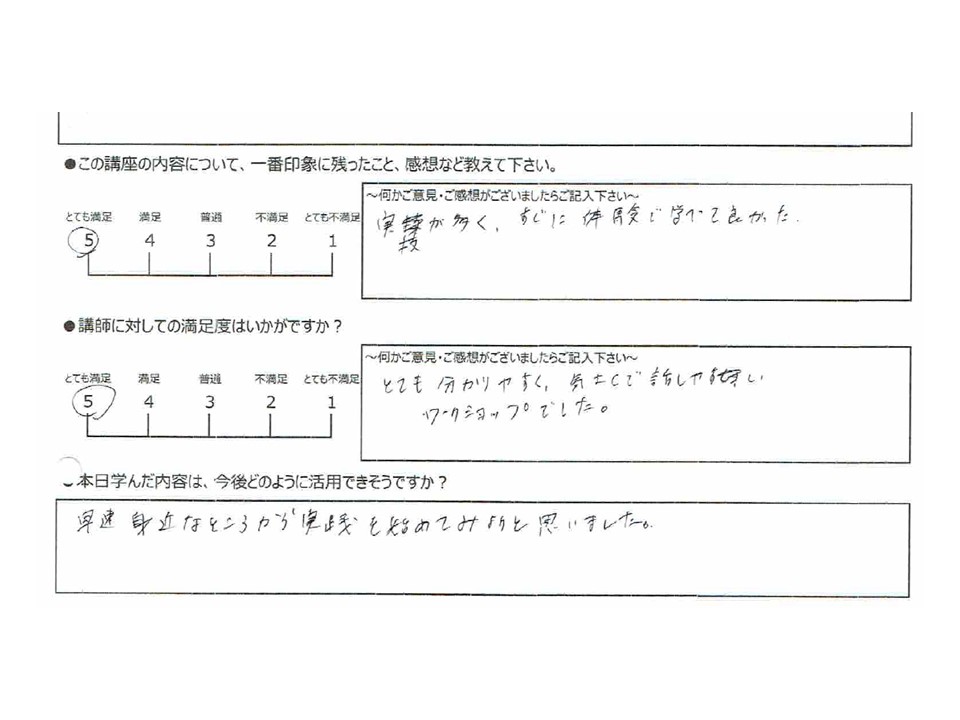 ●この講座の内容について、一番印象に残ったこと、感想など教えて下さい。
とても満足 満足 普通 不満足 とても不満足
5 4 3 2 1
～何かご意見・ご感想がございましたらご記入下さい～
実技が多く、すぐに体験で学べて良かった.
●講師に対しての満足度はいかがですか？
とても満足 満足 普通 不満足 とても不満足
5 4 3 2 1
～何かご意見・ご感想がございましたらご記入下さい～
とても分かりやすく、気さくで話しやすい
ワークショップでした。
本日学んだ内容は、今後どのように活用できそうですか？
早速身近なところから実践を始めてみようと思いました。